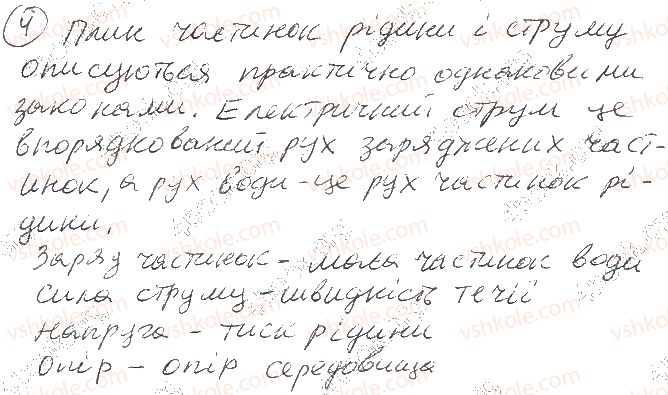 4 Плин частинок рідини і струму
описуються практично однаковими
законами. Електричний струм це
впорядкований рух заряджених част-
инок, а рух води - це рух частинок рі-
дини.
Заряд частинок - маса частинок води
Сила струму - швидкість течії
Напруга - тиск рідини
Опір - опір середовища